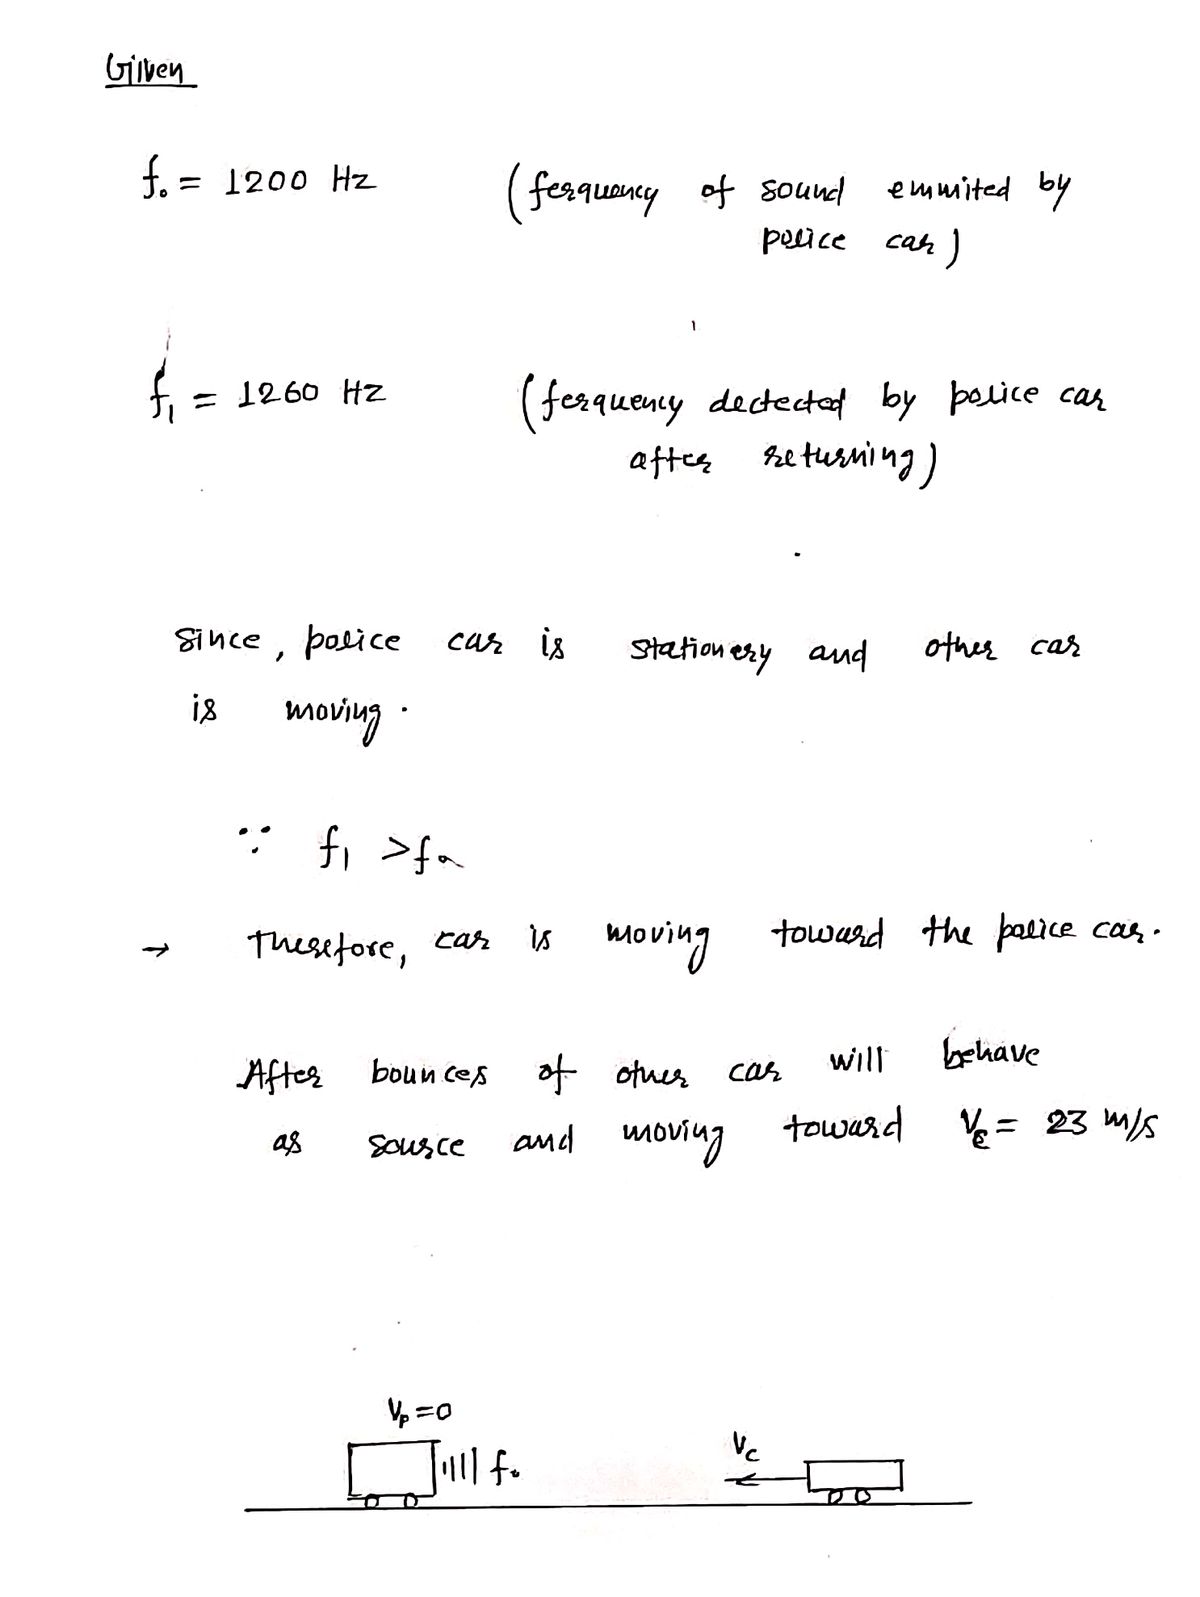 Given
f₀ = 1200 Hz (ferquency of sound emmited by
police car)
f₁ = 1260 Hz (ferquency dectected by police car
after returning)
Since, police car is stationery and other car
is moving.
∵ f₁ > f₀
→ Therefore, car is moving toward the police car.
After bounces of other car will behave
as source and moving toward Vc = 23 m/s
Vp = 0
f₀
Vc